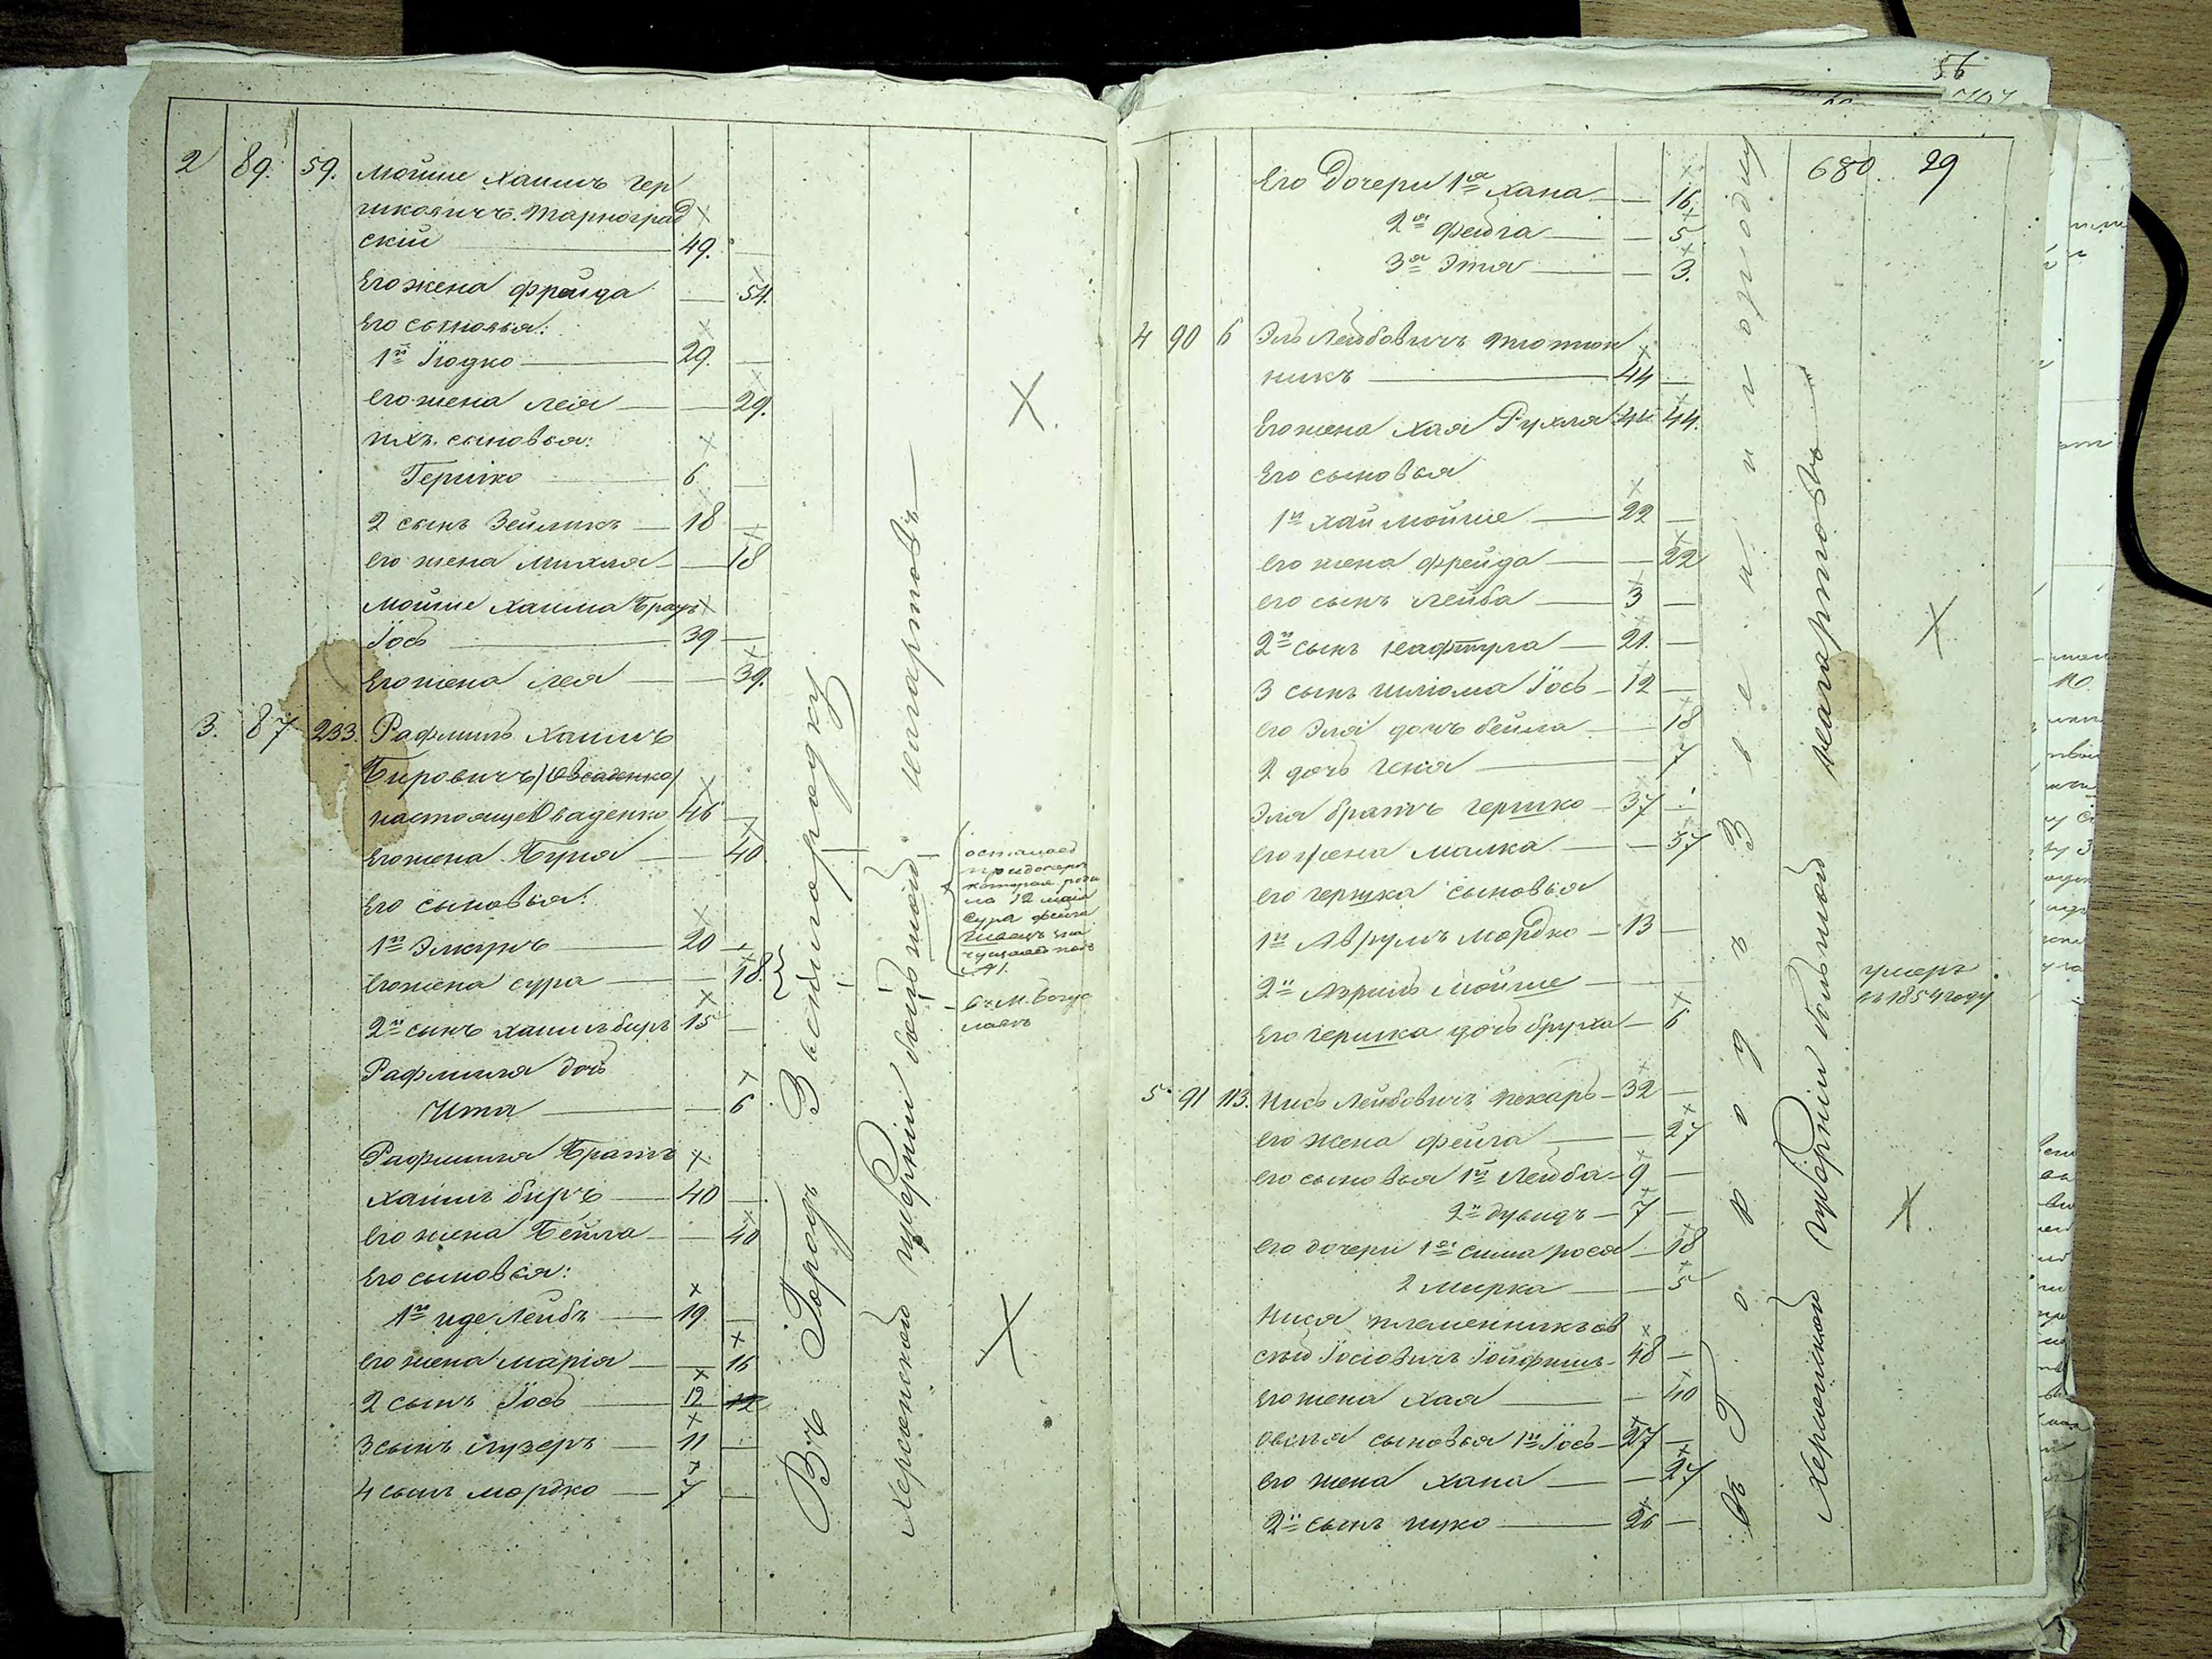 2 89. 59. Мойше Хаимъ Гер
шковичъ. Тарноград
скій 49.
Его жена Фрейда 54.
Его сыновья:
1й Іодко 29.
его жена Лея 29.
ихъ сыновья:
Гершко 6
2 сынъ Зейликъ 18
его жена Михля 18
Мойше Хаима братъ
Іось 39
Его жена Лея 39.
3. 87 233 Рафаилъ Хаимъ
Бировичъ /Овсаденко/
настояще Оваденко 46
Его жена Буня 40
Его сыновья:
1й 20
Его жена Сура 18.
2й сынъ Хаимъ Биръ 15
Рафаила дочь
Ита 6
Рафаила братъ
Хаимъ Биръ 40
Его жена Бейла 40
Его сыновья:
1й Иде Лейбъ 19.
Его жена Марія 16
2 сынъ Іось 12 12
3 сынъ Лузеръ 11
4 сынъ Мордко 7
Въ Городъ Звенигородку
Херсонской губерніи
которая роди
12 мая
Сура Фейга
въ М. Богус
лавъ
56
680 29
Его Дочери 1я Хана 16.
2я Фейга 5
3я Этя 3.
4 90 6 Эль Лейбовичъ Тютюн
никъ 44
Его жена Хая Рухля 44 44.
Его сыновья
1й Хаи Мойше 22
его жена Фрейда 22
его сынъ Лейба 3
2й сынъ Нафтула 21.
3 сынъ Шліома Іось 12
его Эля дочь Бейла 18
2 дочь Геня 7
Эля братъ Гершко 37
его жена Малка 37
его Гершка сыновья
1й Аврумъ Мордко 13
2й Мойше
умеръ
въ 1854 году
Его Гершка дочь Бруха 6
5 91 113. Нись Лейбовичъ Пекарь 32
его жена Фейга 27
его сыновья 1й Лейба 9
2й Дувидъ 7
его дочери 1я Сима Рося 18
2 Мирка 5
Нися племенникъ Ов
сѣй Іосіовичъ 48
Его жена Хая 40
Овсѣя сыновья 1й Іось 27
его жена Хана 27
2й сынъ Ицко 26
Въ Городъ Звенигородку
Херсонской губерніи